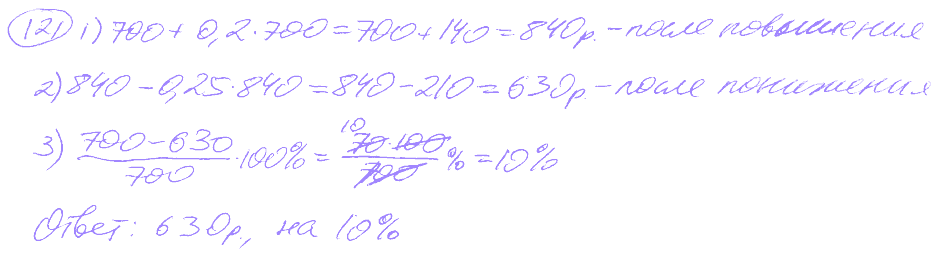 121) 1) 700 + 0,2·700 = 700 + 140 = 840р. – после повышения
2) 840 – 0,25·840 = 840 – 210 = 630р – после понижения
3) (700 – 630)/700 · 100% = (70·100)/700 % = 10%
10
Ответ: 630р., на 10%